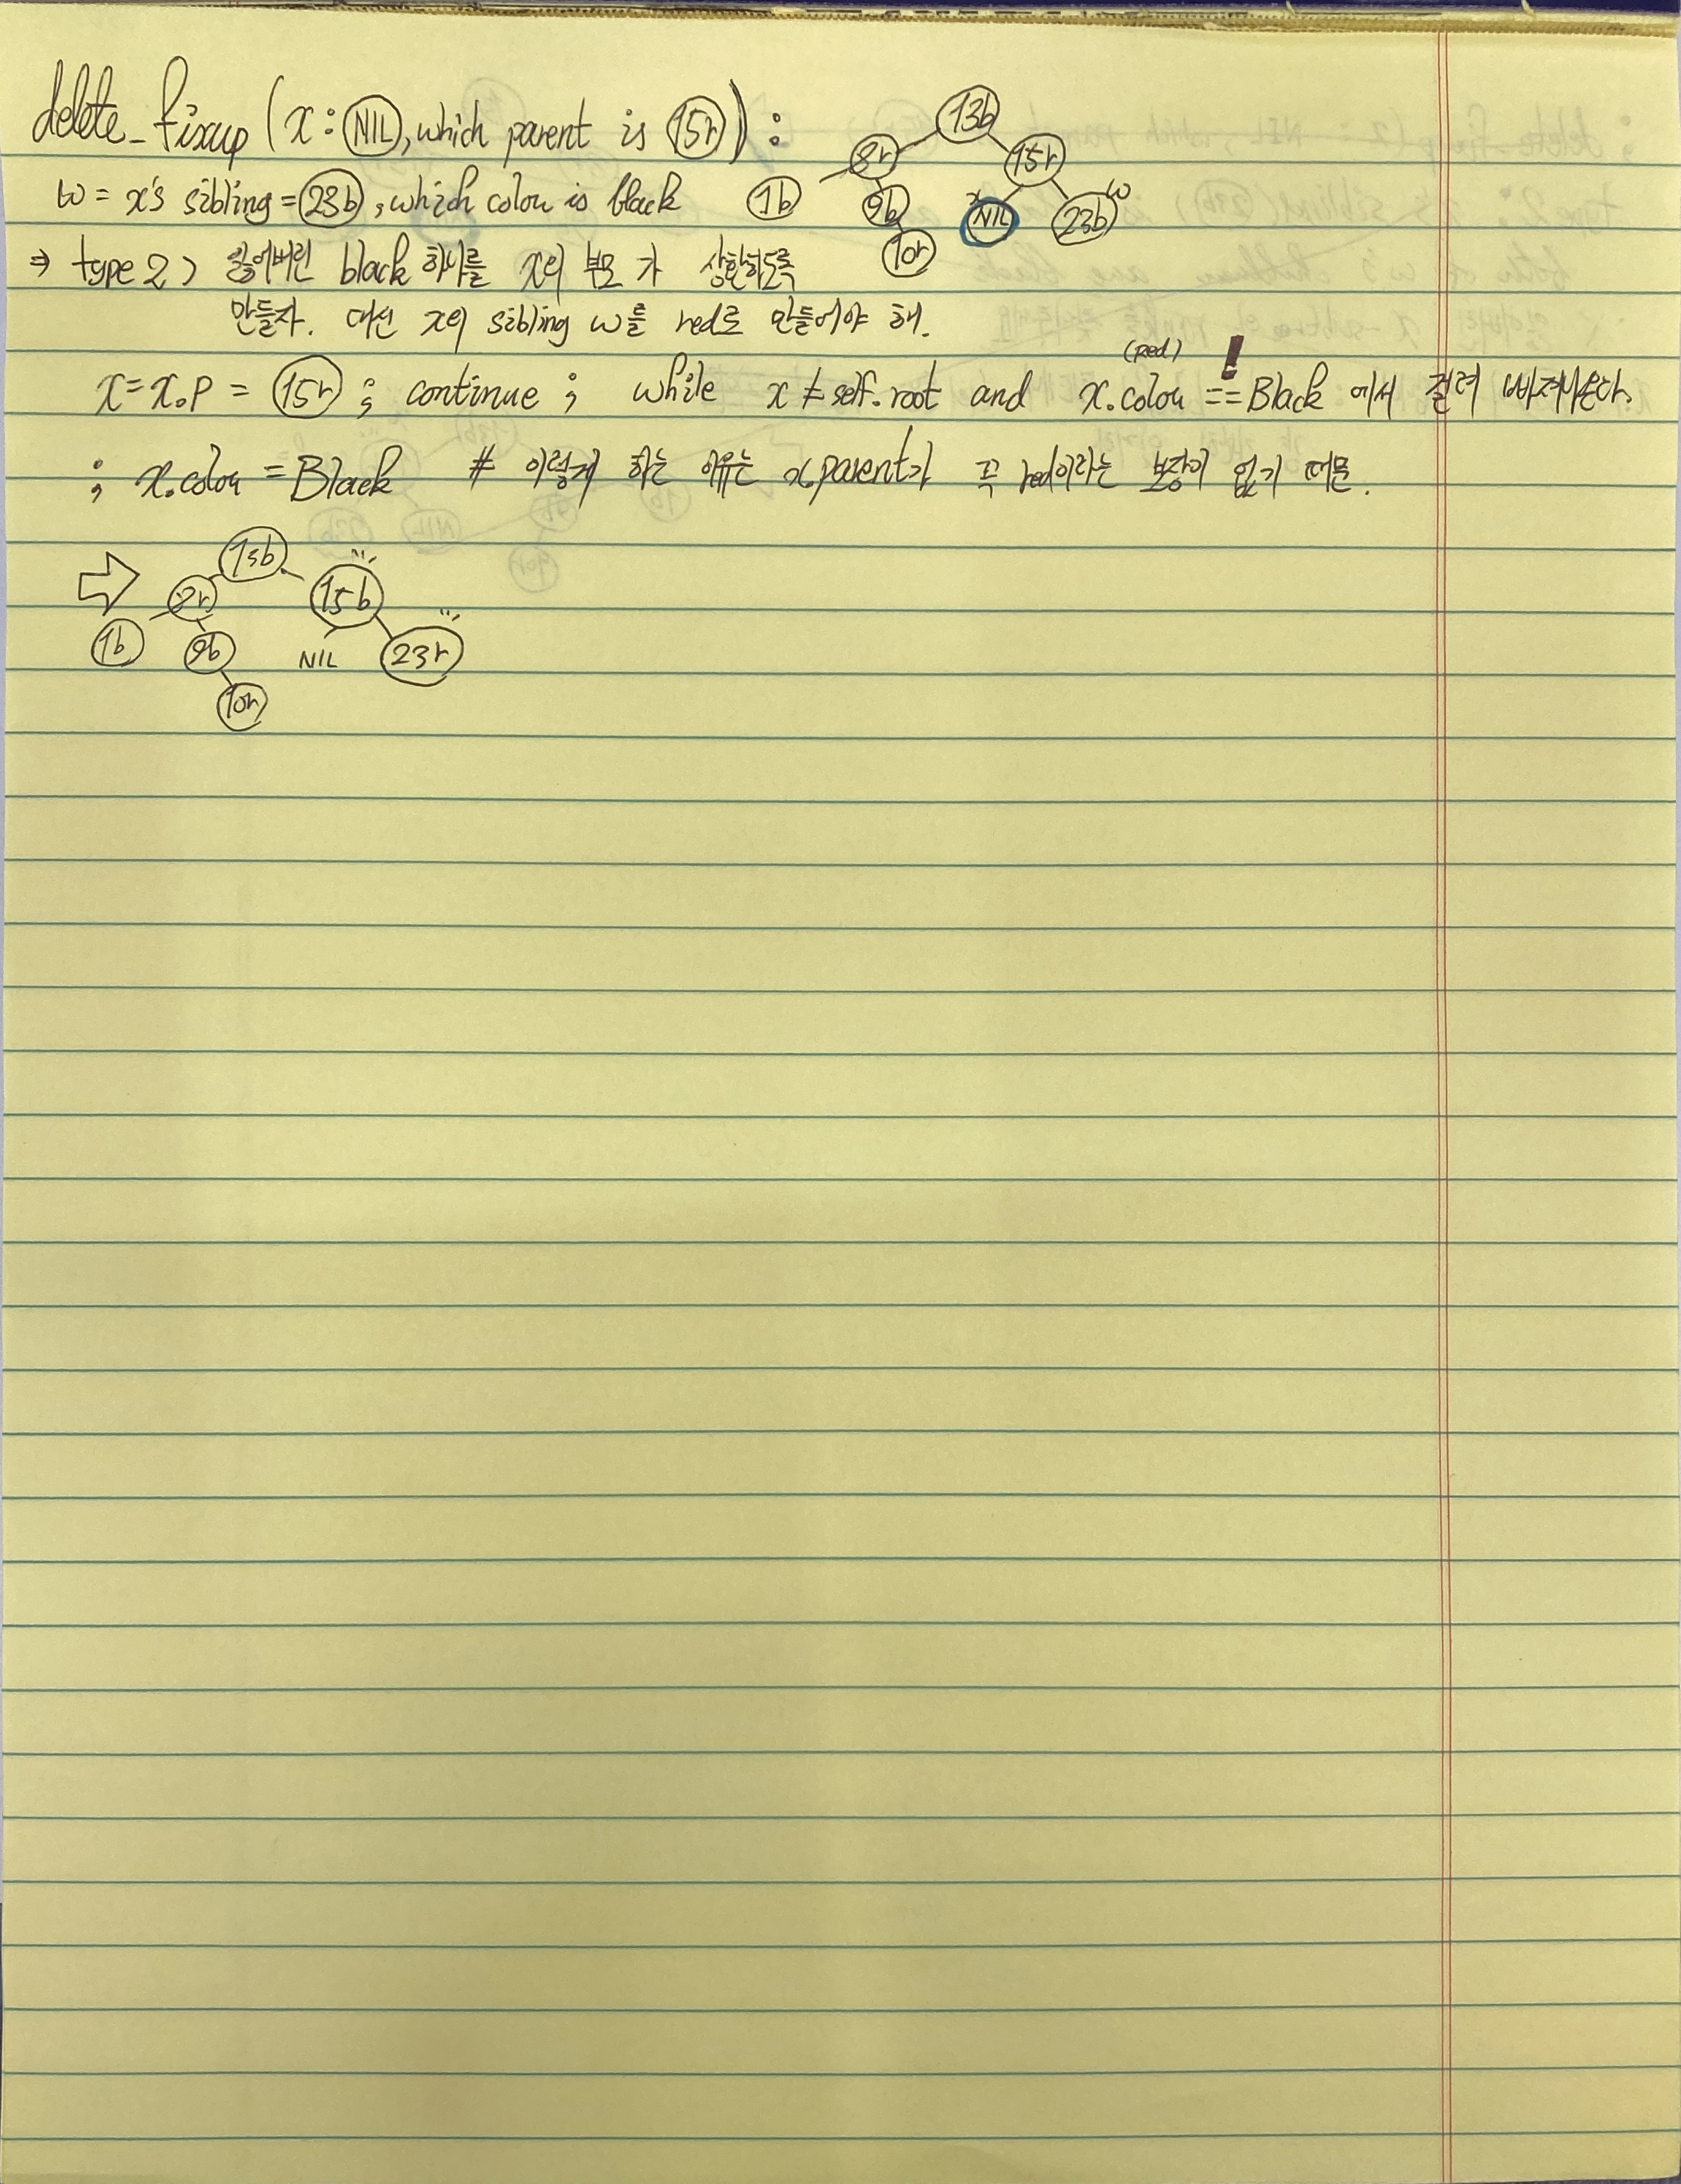 delete_fixup (x: NIL, which parent is 15r):
13b
8r 15r
1b 9b x NIL 23b w
10r
w = x's sibling = 23b, which colou is black
⇒ type 2> 잃어버린 black 하나를 x의 부모가 상환하도록
만들자. 대신 x의 sibling w를 red로 만들어야 해.
(red) !
x = x.p = 15r ; continue ; while x ≠ self.root and x.colou == Black 에서 걸려 빠져나온다.
; x.colou = Black # 이렇게 하는 이유는 x.parent가 꼭 red이라는 보장이 없기 때문.
13b
8r 15b
1b 9b NIL 23r
10r